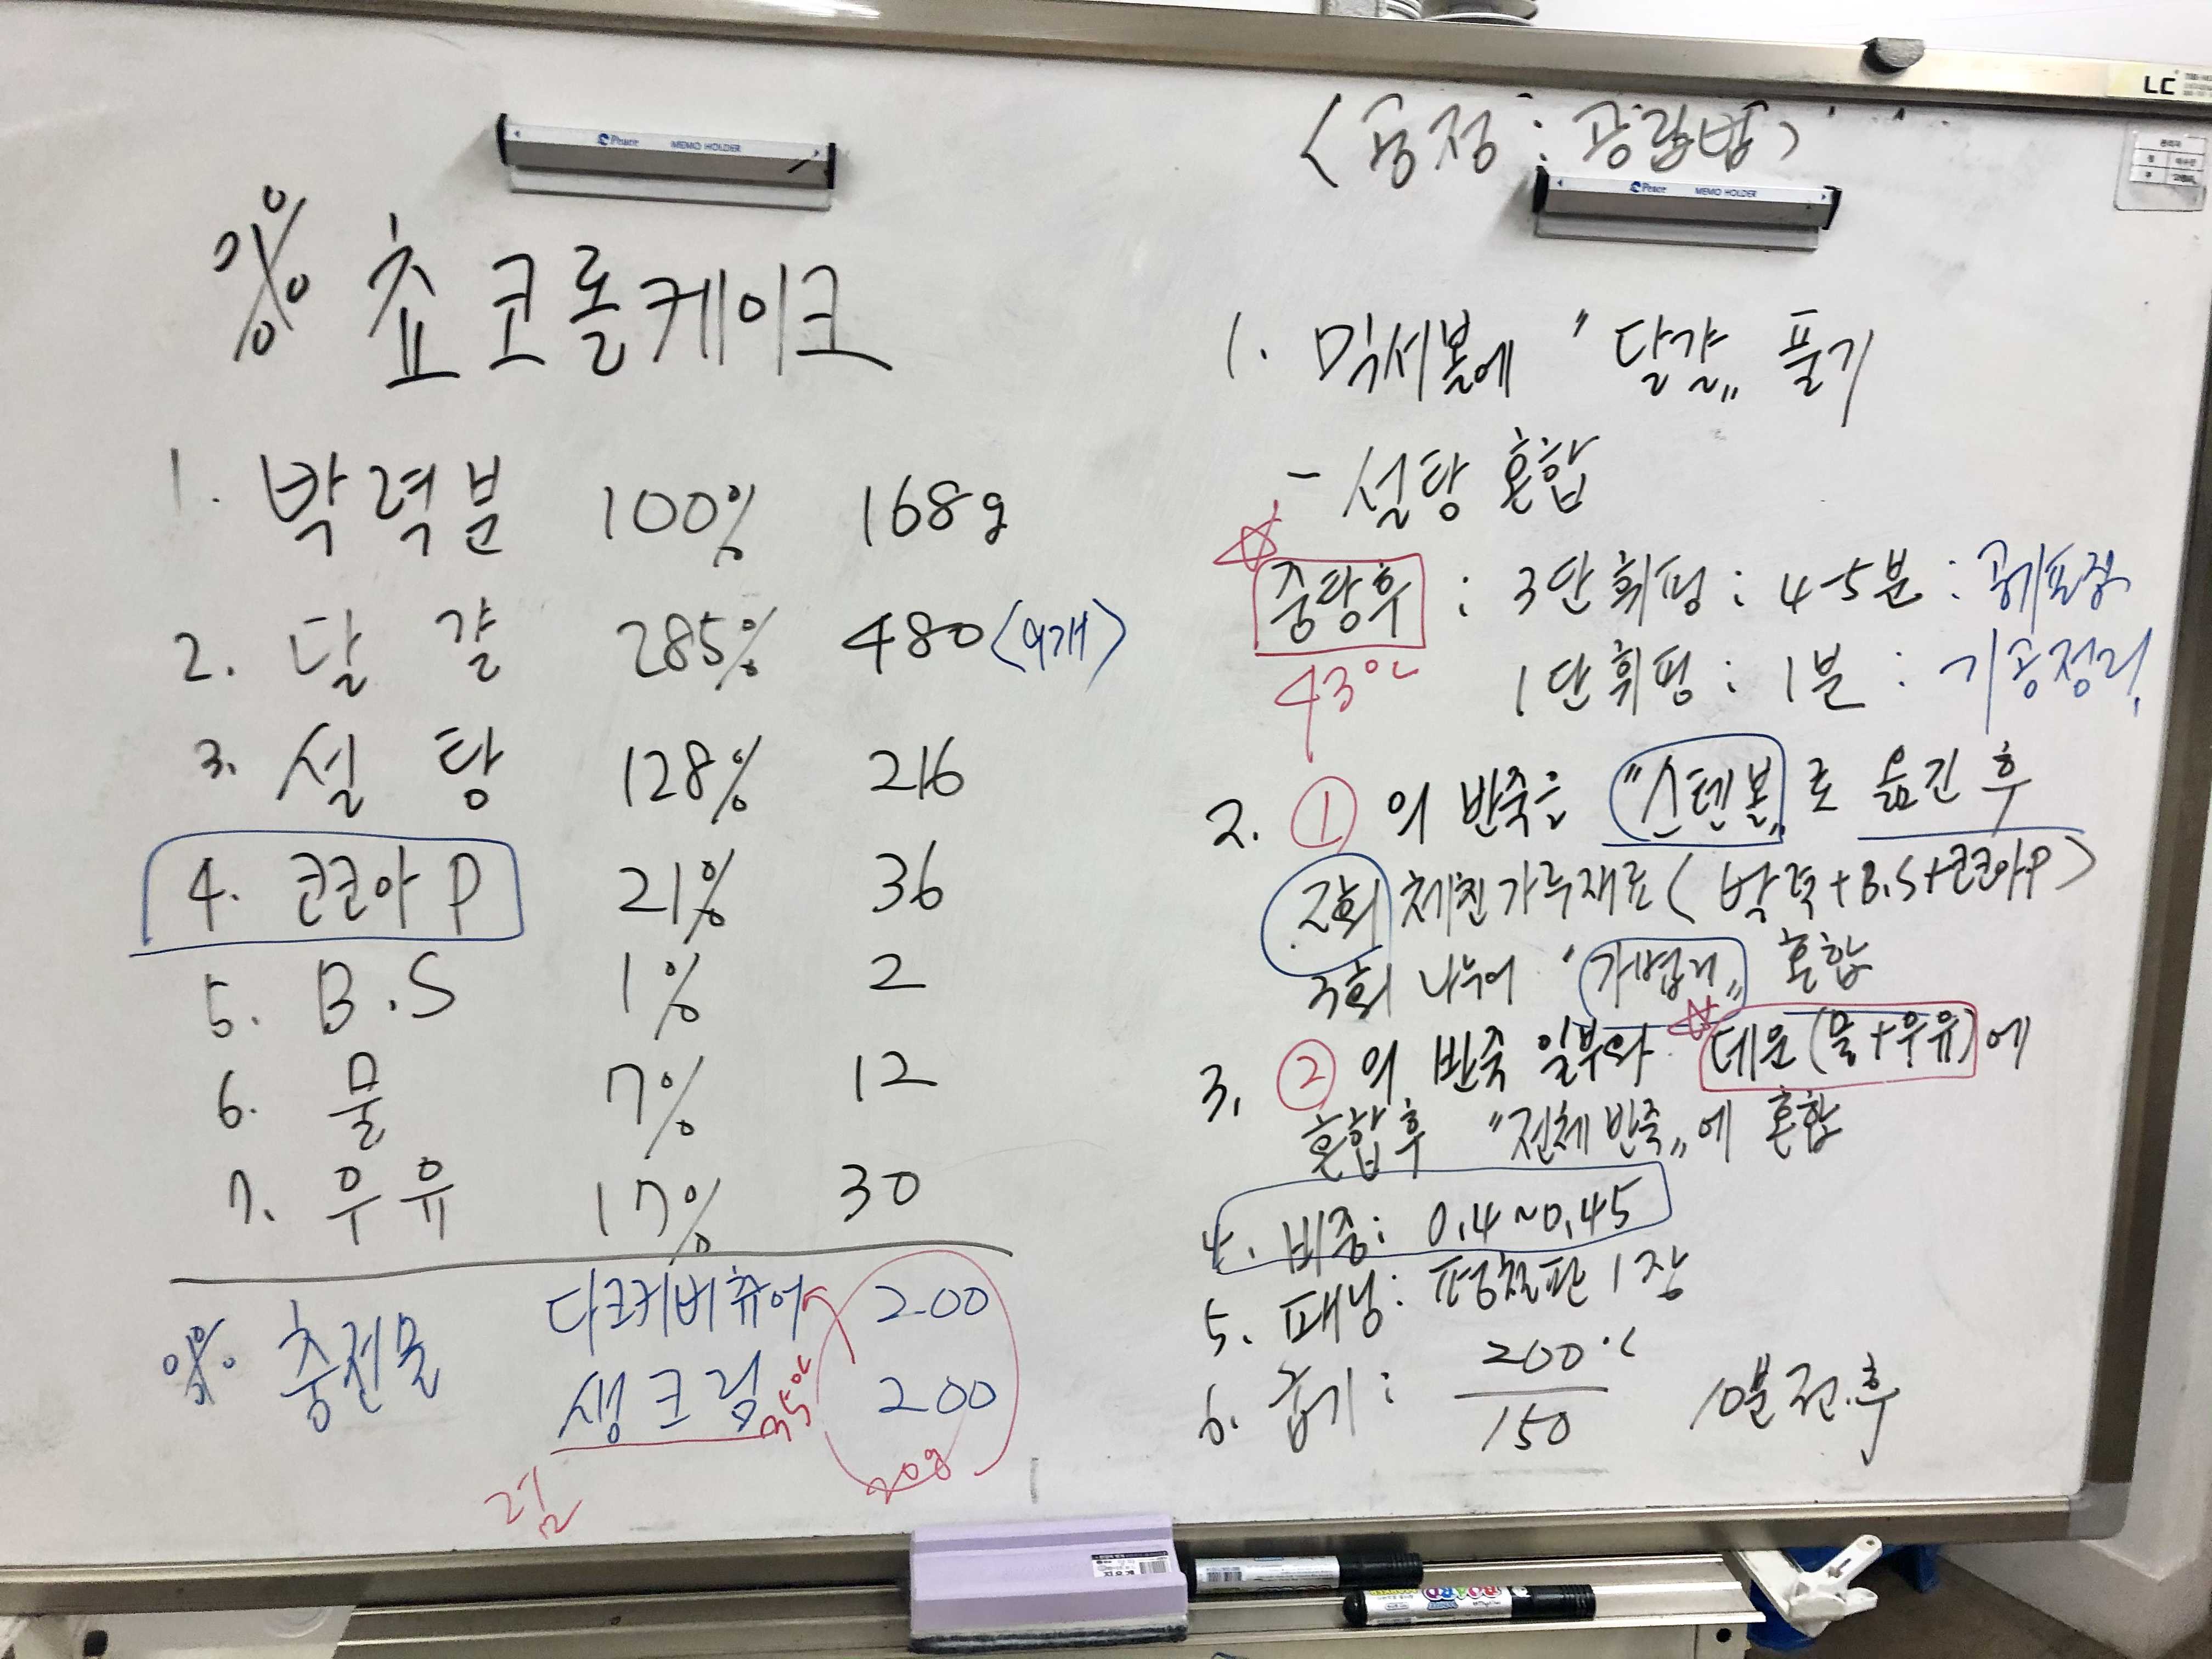 Peace MEMO HOLDER
Peace MEMO HOLDER
LC
초코롤케이크
1. 박력분 100% 168g
2. 달걀 285% 480 <9개>
3. 설탕 128% 216
4. 코코아 P 21% 36
5. B.S 1% 2
6. 물 7% 12
7. 우유 17% 30
충전물 다크커버츄어 200
생크림 35℃ 200
<공정: 공립법>
1. 믹서볼에 "달걀" 풀기
- 설탕 혼합
중탕후 : 3단휘핑 : 4-5분 : 공기포집
43℃ 1단휘핑 : 1분 : 기공정리
2. ① 의 반죽을 "스텐볼"로 옮긴 후
2회 체친가루재료 (박력+B.S+코코아P)
3회 나누어 "가볍게" 혼합
3. ② 의 반죽 일부와 데운(물+우유)에
혼합후 "전체반죽"에 혼합
4. 비중: 0.4~0.45
5. 패닝: 평철판 1장
6. 굽기: 200℃/150 10분 전.후